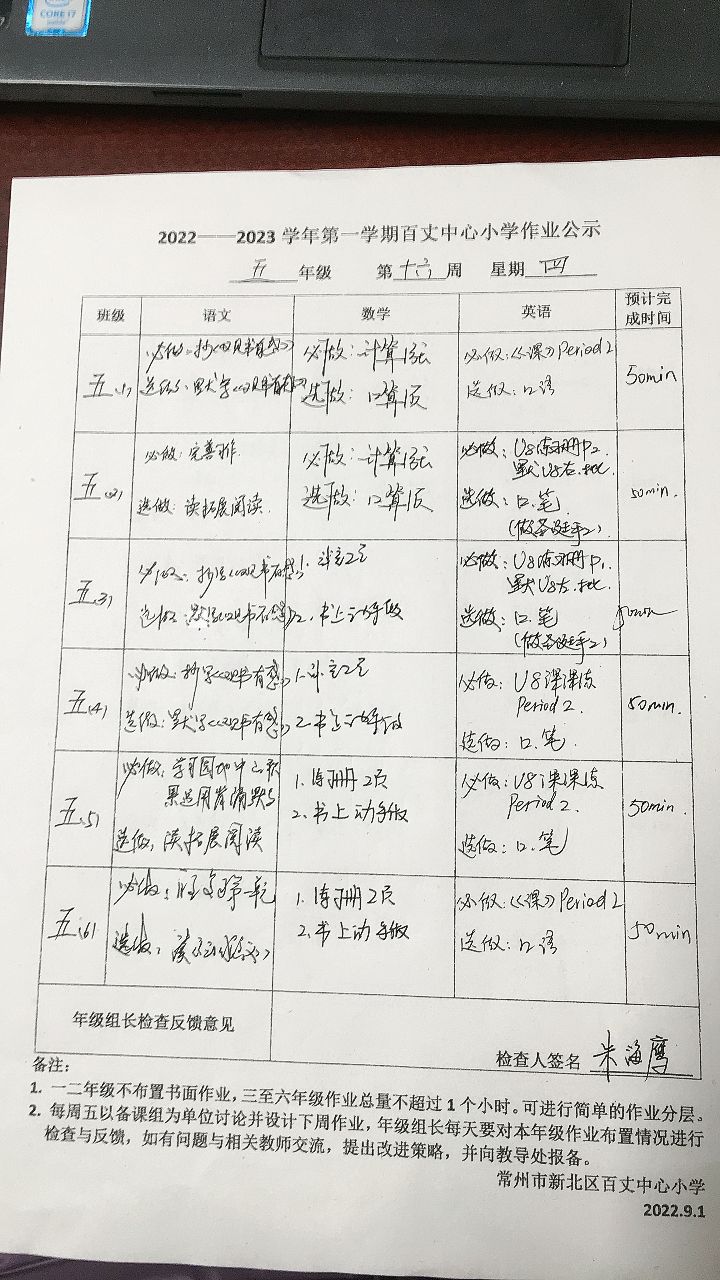 CORE i7
2022——2023 学年第一学期百丈中心小学作业公示
五 年级 第 十六 周 星期 四
班级 语文 数学 英语 预计完成时间
五(1)
必做:抄《四
选做:默字《
必做:计算
选做:口算1页
必做:《课》Period 2
选做:口语
50min
五(2)
必做:完善习作
选做:读拓展阅读.
必做:计算
选做:口算1页
必做:U8练习册P2.
默U8
选做:口.笔
50min.
五(3)
必做:抄
选做:
1.
2.书上动手做
必做:U8练习册P1.
默U8
选做:口.笔
50min
五(4)
必做:抄字《
选做:默字《
1.
2.书上动手做
必做:U8课课练
Period 2.
选做:口.笔.
50min.
五(5)
必做:学习园地中
选做:读拓展阅读
1.练习册2页
2.书上动手做
必做:U8课课练
Period 2.
选做:口.笔
50min.
五(6)
必做:
选做:读
1.练习册2页
2.书上动手做
必做:《课》Period 2
选做:口语
50min
年级组长检查反馈意见
检查人签名 朱海鹰
备注:
1. 一二年级不布置书面作业,三至六年级作业总量不超过 1 个小时。可进行简单的作业分层。
2. 每周五以备课组为单位讨论并设计下周作业,年级组长每天要对本年级作业布置情况进行
检查与反馈,如有问题与相关教师交流,提出改进策略,并向教导处报备。
常州市新北区百丈中心小学
2022.9.1